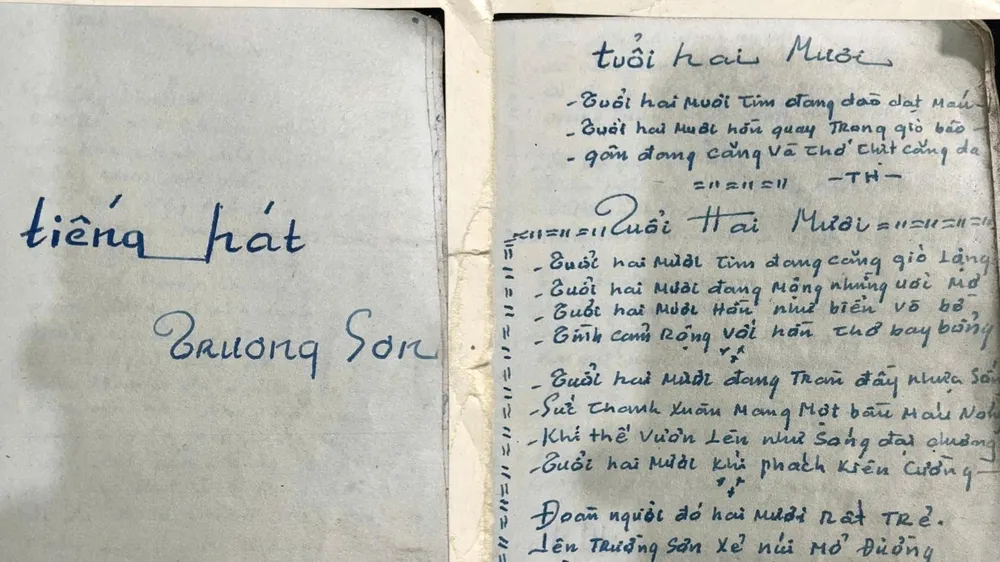 tiếng hát
Trương Sơn
tuổi hai Mươi
- Tuổi hai Mươi Tim đang dào dạt Máu -
- Tuổi hai Mươi hồn quay Trong gió bão -
- gân đang căng và Thớ Thịt căng da
="="=" -TH-
="="="="Tuổi Hai Mươi="="="="=
- Tuổi hai Mươi Tim đang căng gió Lộng
- Tuổi hai Mươi đang Mộng những ươi Mơ
- Tuổi hai Mươi Hồn như biển vô bờ
- Tình cảm Rộng với hồn Thơ bay bổng
- Tuổi hai Mươi đang Tràn đầy nhựa
- Sức Thanh Xuân Mang Một bầu Máu
- Khí Thế Vươn Lên như Sóng đại dương
- Tuổi hai Mươi Khí phách Kiên Cường -
Đoàn người đó hai Mươi Rất TRẻ.
Lên TRường Sơn Xẻ núi Mở Đường